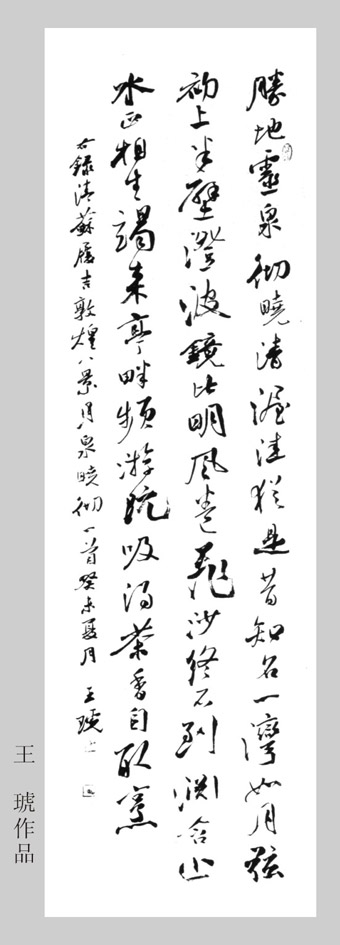 勝地靈泉彻曉清渥洼猶是昔知名一灣如月弦
初上半壁澄波鏡比明风卷飛沙終不到渊含止
水正相生竭来亭畔頻游玩吸得茶香自取烹
右録清蘇履吉敦煌八景月泉曉彻一首癸未夏月 王琥
王 琥作品